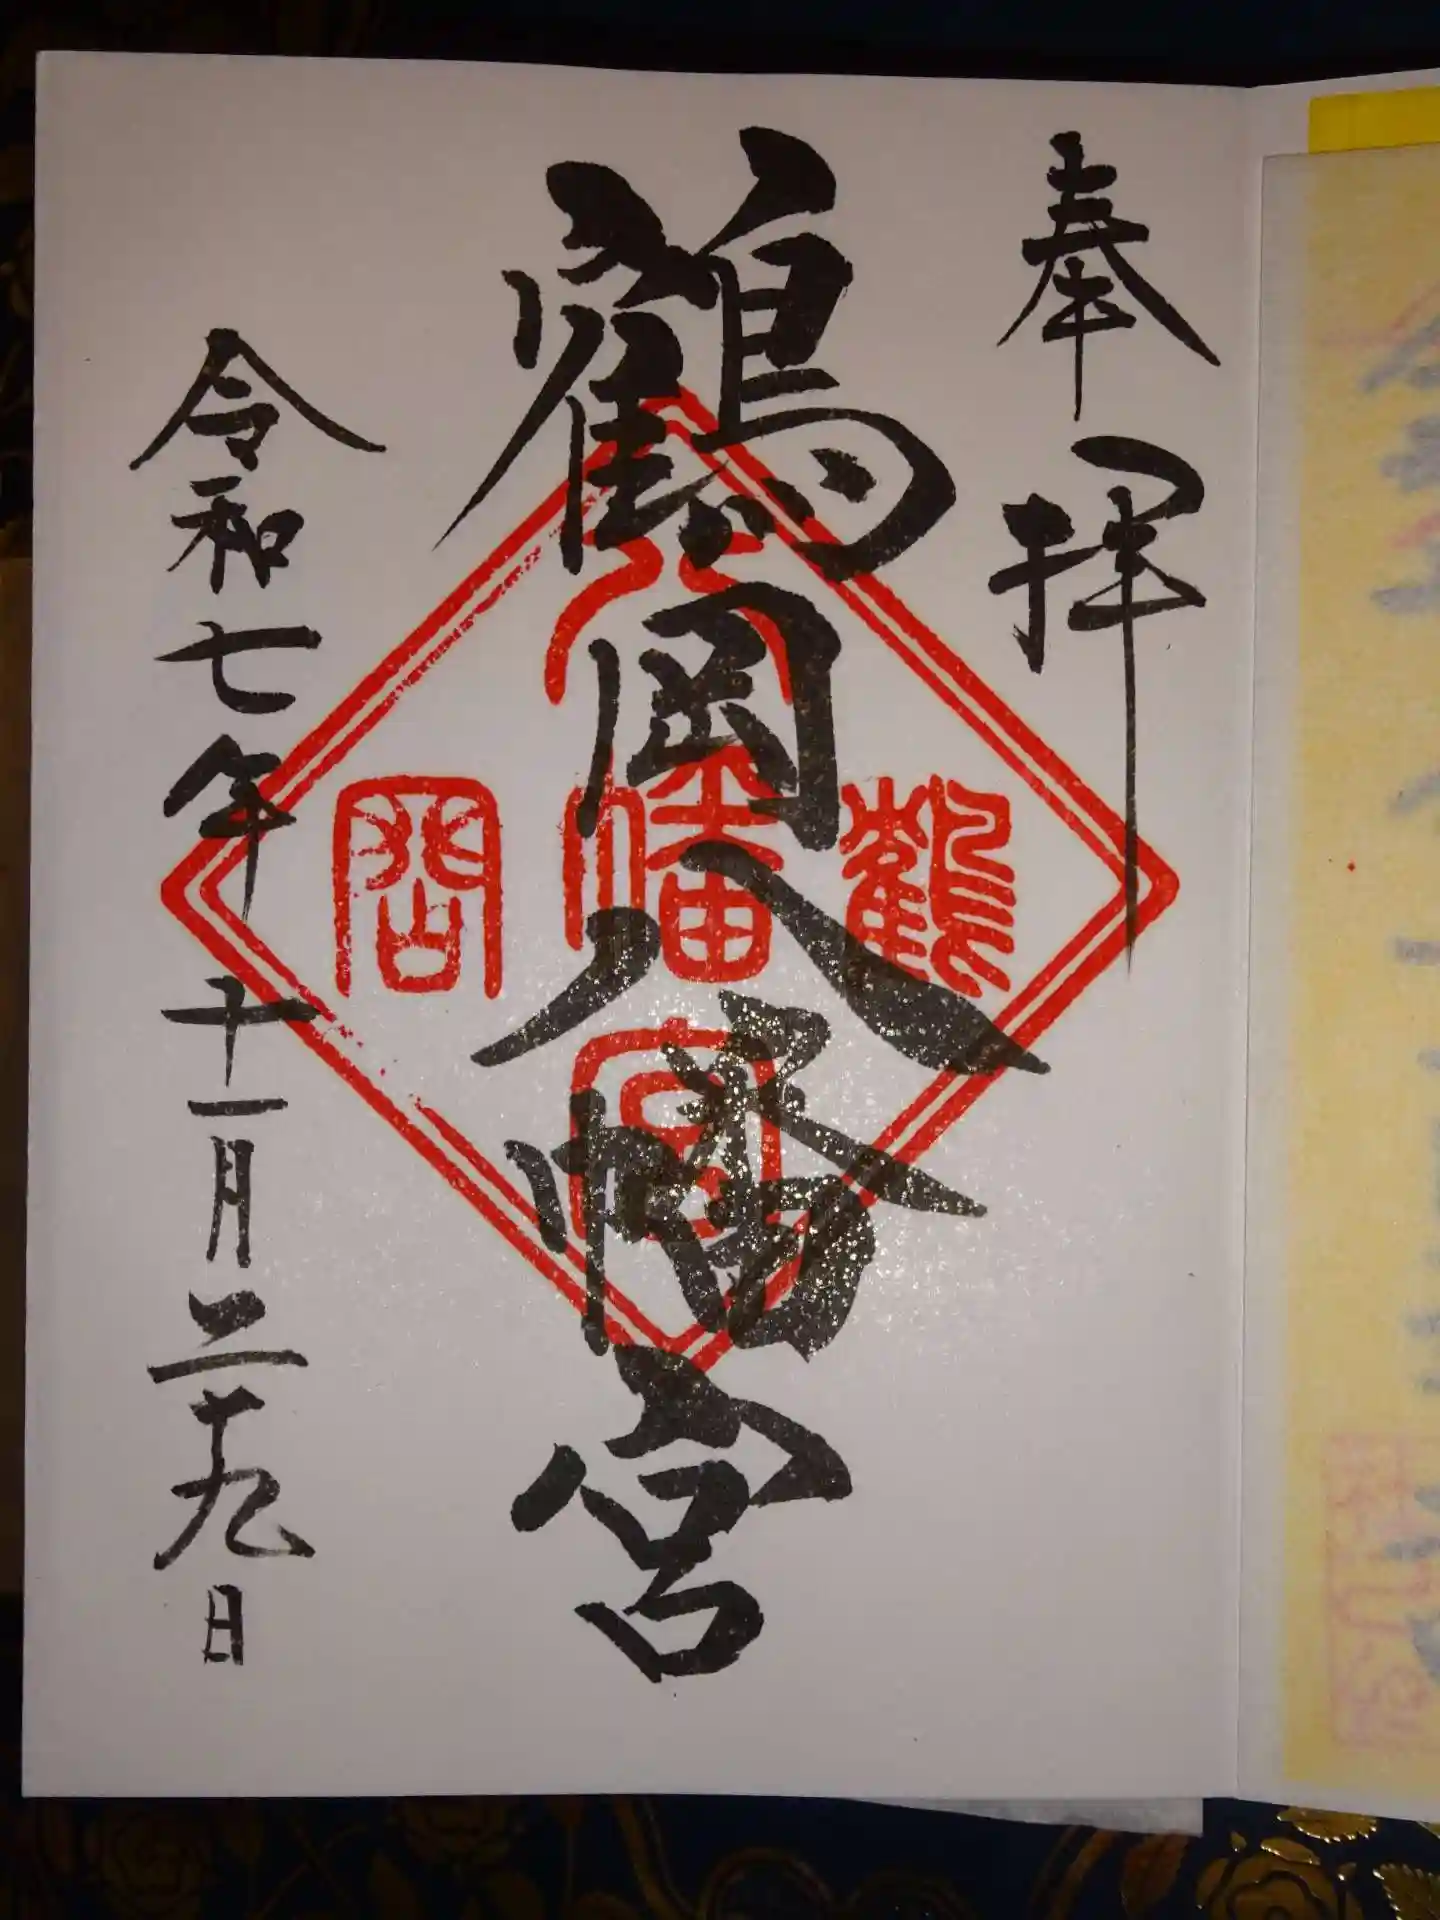 奉拝
鶴岡八幡宮
八幡宮
鶴
岡
令和七年十一月二十九日